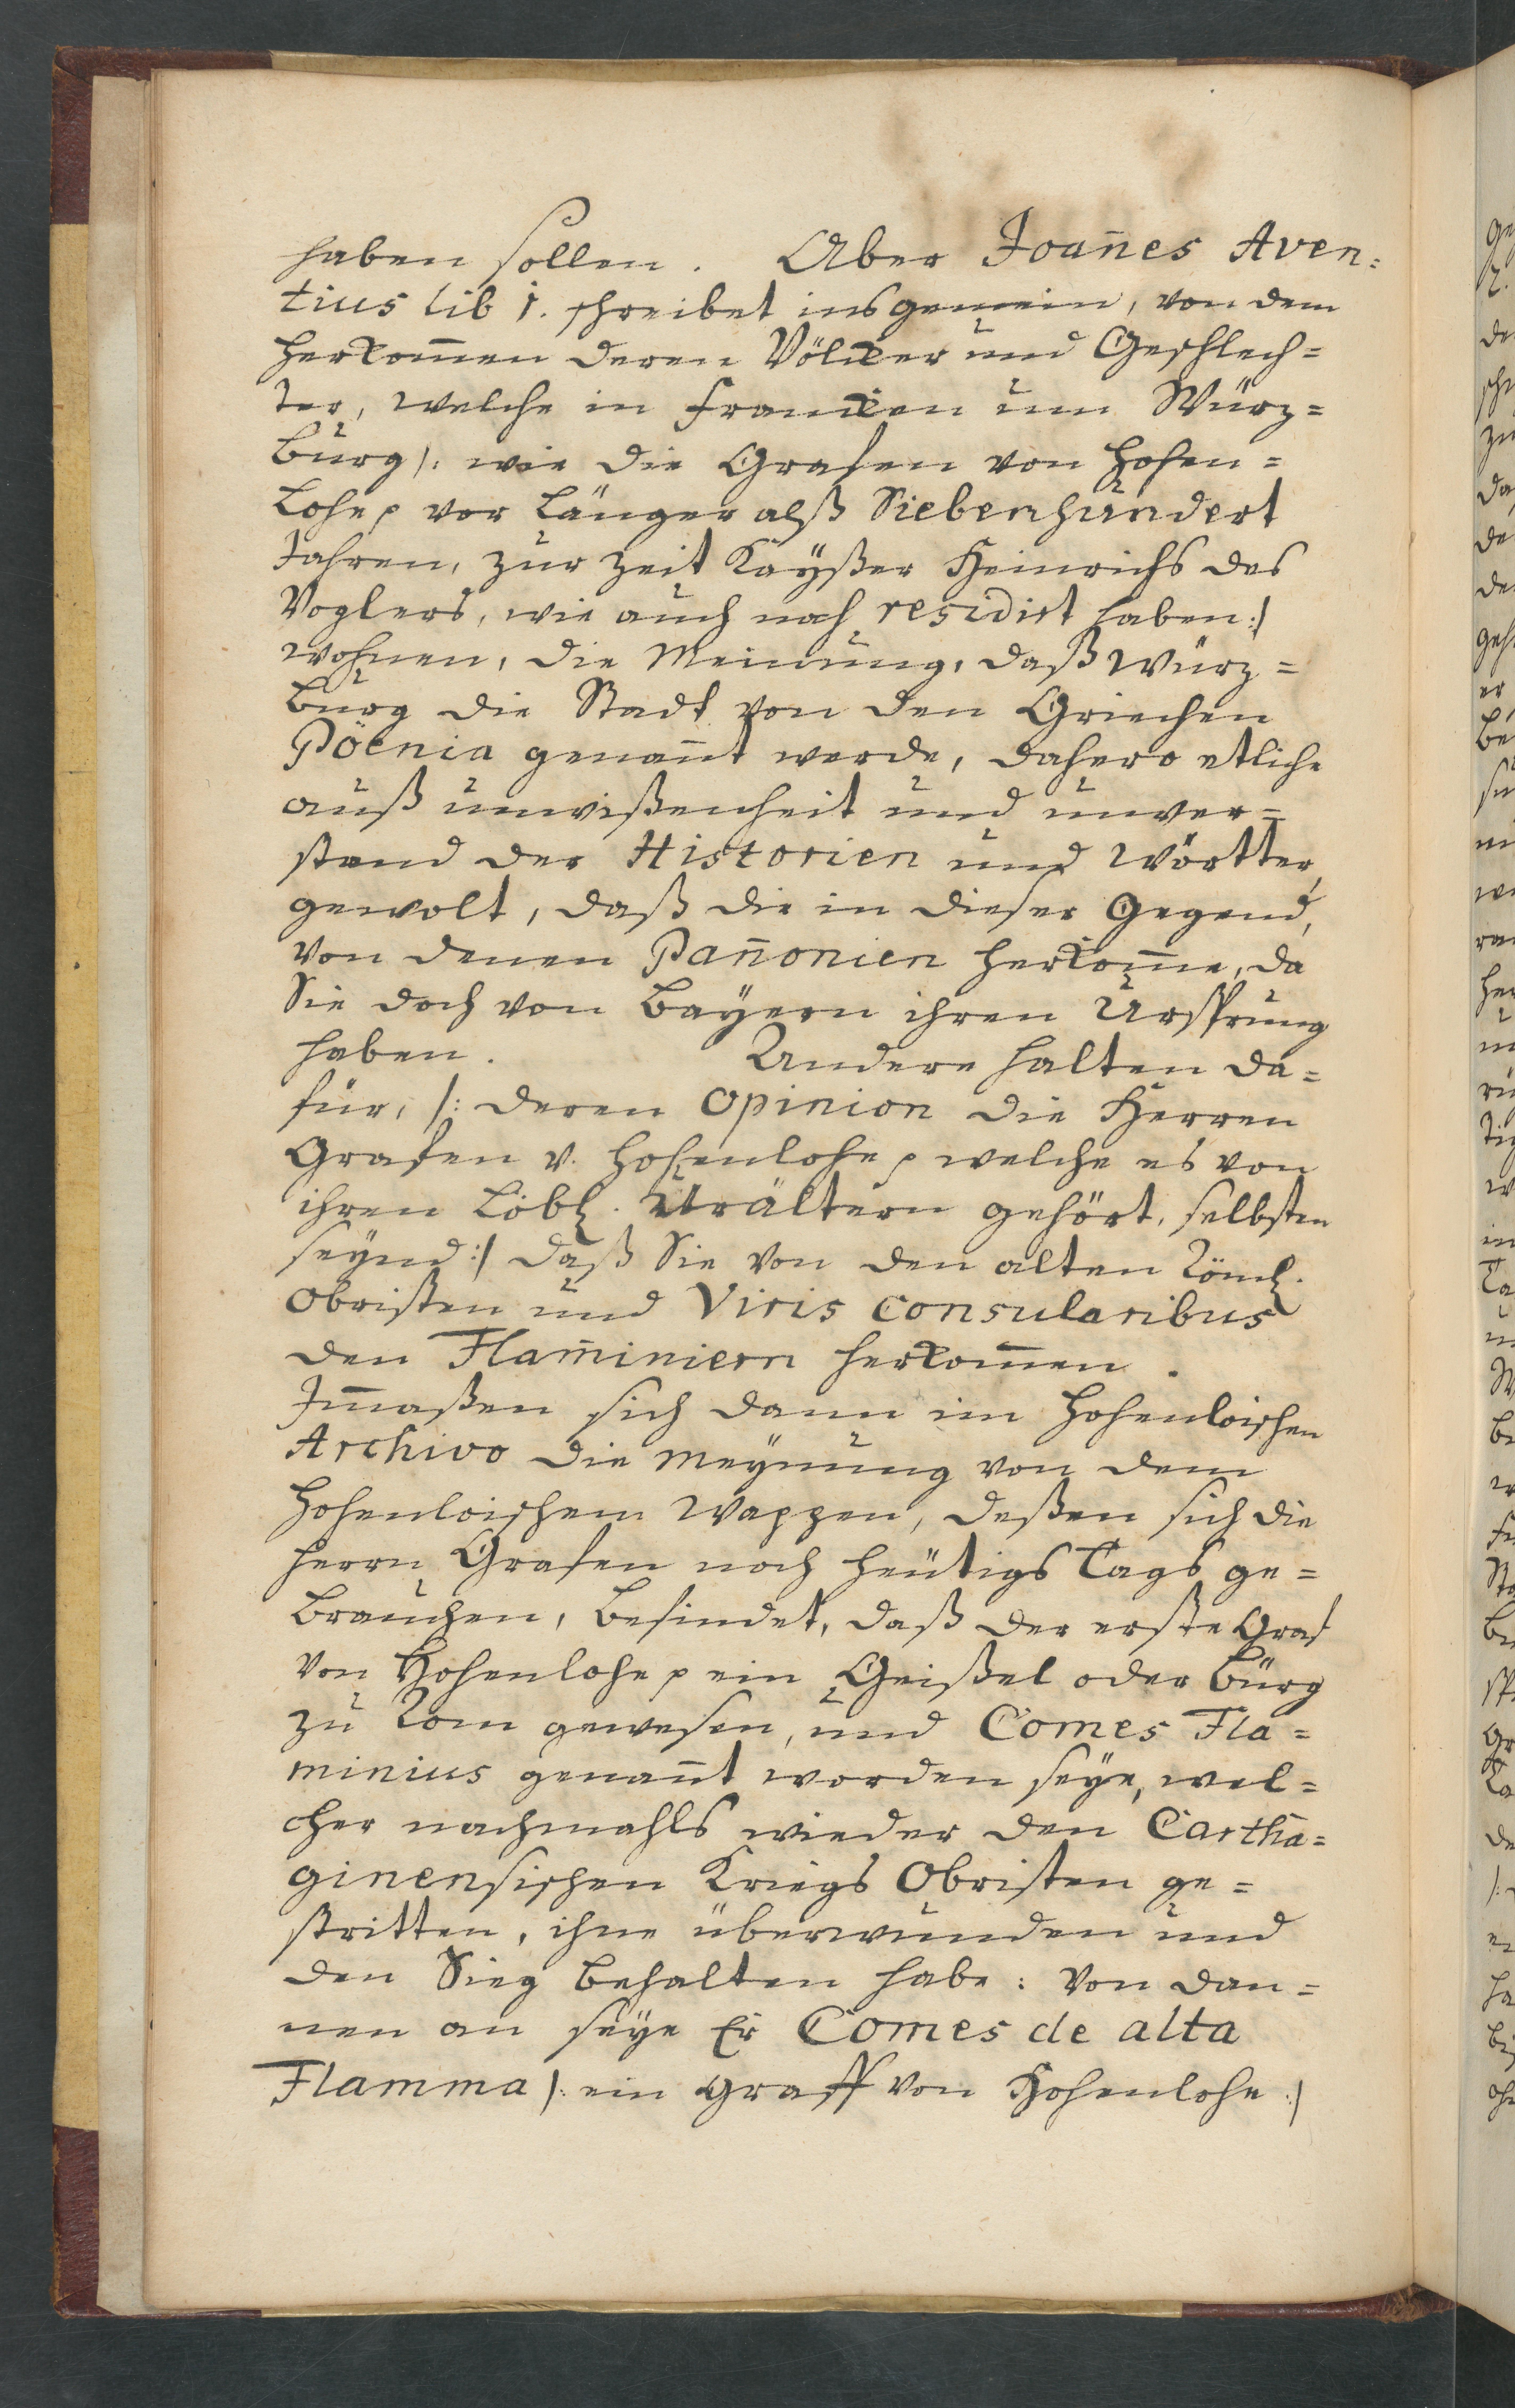 haben sollen. Aber Joan̄es Aven=
tius lib 1. schreibet insgemein, von dem
herkom̄en deren Völcker und Geschlech=
ter, welche in Francken um Würz=
burg /: wie die Grafen von Hohen=
lohe p vor länger alß Siebenhundert
Jahren, zur Zeit Kayßer Heinrichs des
Voglers, wie auch noch residirt haben :/
wohnen, die Meinung, daß Würz=
burg die Stadt von den Griechen
Pöenia genan̄t werde, dahero etliche
auß unwißenheit und unver=
stand der Historien und Wörtter,
gewolt, daß die in dieser Gegend,
von denen Pan̄onien herkom̄e, da
Sie doch von Bayern ihren Ursprung
haben. Andere halten da=
für, /: deren Opinion die Herren
Grafen v. Hohenlohe p welche es von
ihren Löbl. Urältern gehört, selbsten
seynd :/ daß Sie von den alten Röml.
Obristen und Viris Consularibus
den Flam̄iniern herkom̄en.
Im̄aßen sich dann im Hohenloischen
Archivo die Meynung von dem
Hohenloischem Wappen, deßen sich die
Herrn Grafen noch heütigs Tags ge=
brauchen, befindet, daß der erste Graf
von Hohenlohe p ein Geißel oder Bürg
zu Rom gewesen, und Comes Fla=
minius genan̄t worden seye, wel=
cher nachmahls wieder den Cartha=
ginensischen Kriegs Obristen ge=
stritten, ihne überwunden und
den Sieg behalten habe: Von dan=
nen an seye Er Comes de alta
Flamma /: ein Graff von Hohenlohe :/